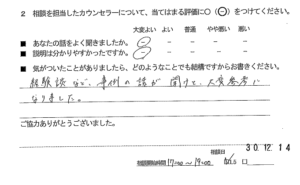 2 相談を担当したカウンセラーについて、当てはまる評価に○(⊖)をつけてください。
大変よい よい 普通 やや悪い 悪い
■ あなたの話をよく聞きましたか。 － － － － －
■ 説明は分かりやすかったですか。 － － － － －
■ 気がついたことがありましたら、どのようなことでも結構ですからお書きください。
経験談など、事例の話が聞けて、大変参考に
なりました。
ご協力ありがとうございました。
相談日 30.12.14
相談開始時間 17:00 ～ 19:00